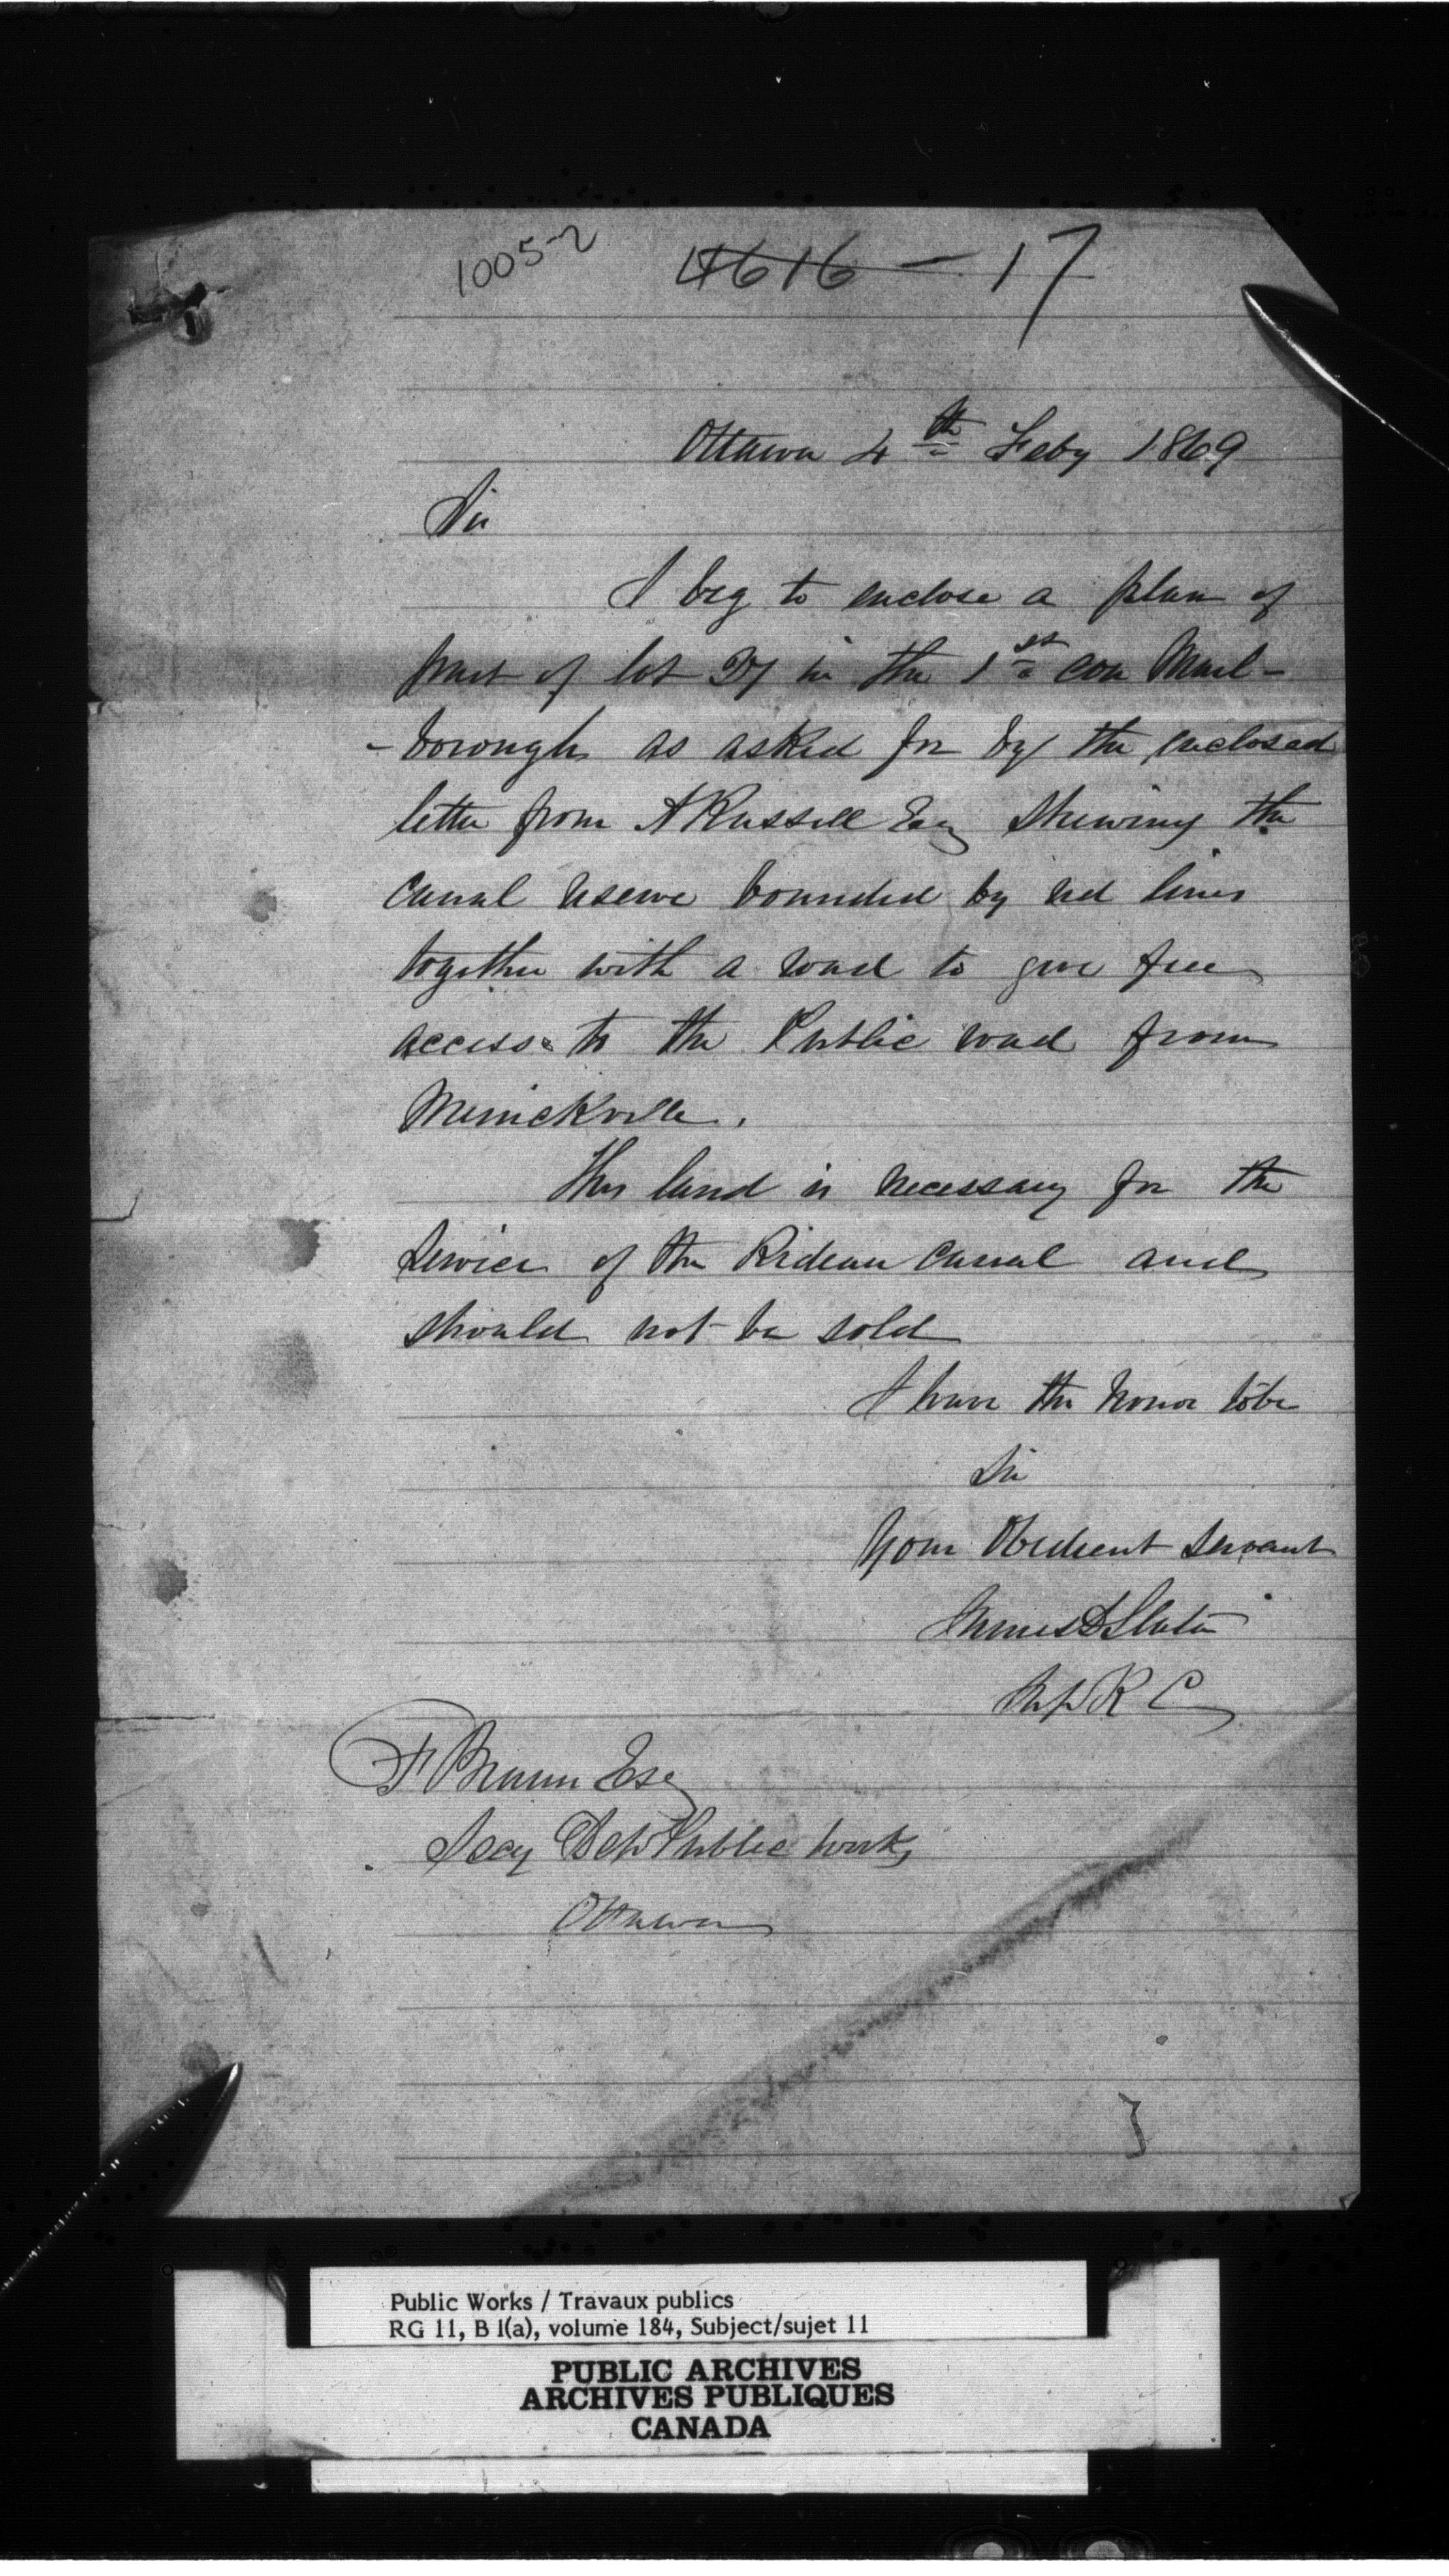 1005-2
4616 - 17
Ottawa 4th Feby 1869
Sir
I beg to enclose a plan of
part of lot 27 in the 1st con Marl-
-borough as asked for by the enclosed
letter from A Russell Esq Shewing the
canal reserve bounded by red lines
together with a road to give free
access to the Public road from
Merrickville.
This land is necessary for the
Service of the Rideau Canal and
should not be sold
I have the honor to be
Sir
Your Obedient Servant
James D Slater
Sup R C
F Braun Esq
Secy Dep Public Works
Ottawa
Public Works / Travaux publics
RG 11, B 1(a), volume 184, Subject/sujet 11
PUBLIC ARCHIVES
ARCHIVES PUBLIQUES
CANADA